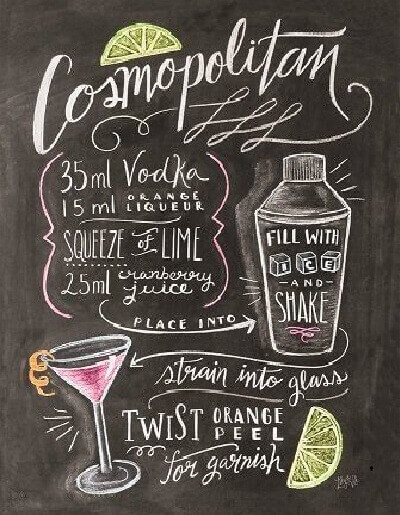 Cosmopolitan
35ml Vodka
15 ml ORANGE LIQUEUR
SQUEEZE OF LIME
25ml cranberry juice
PLACE INTO
FILL WITH
ICE
AND
SHAKE
strain into glass
TWIST ORANGE PEEL
for garnish